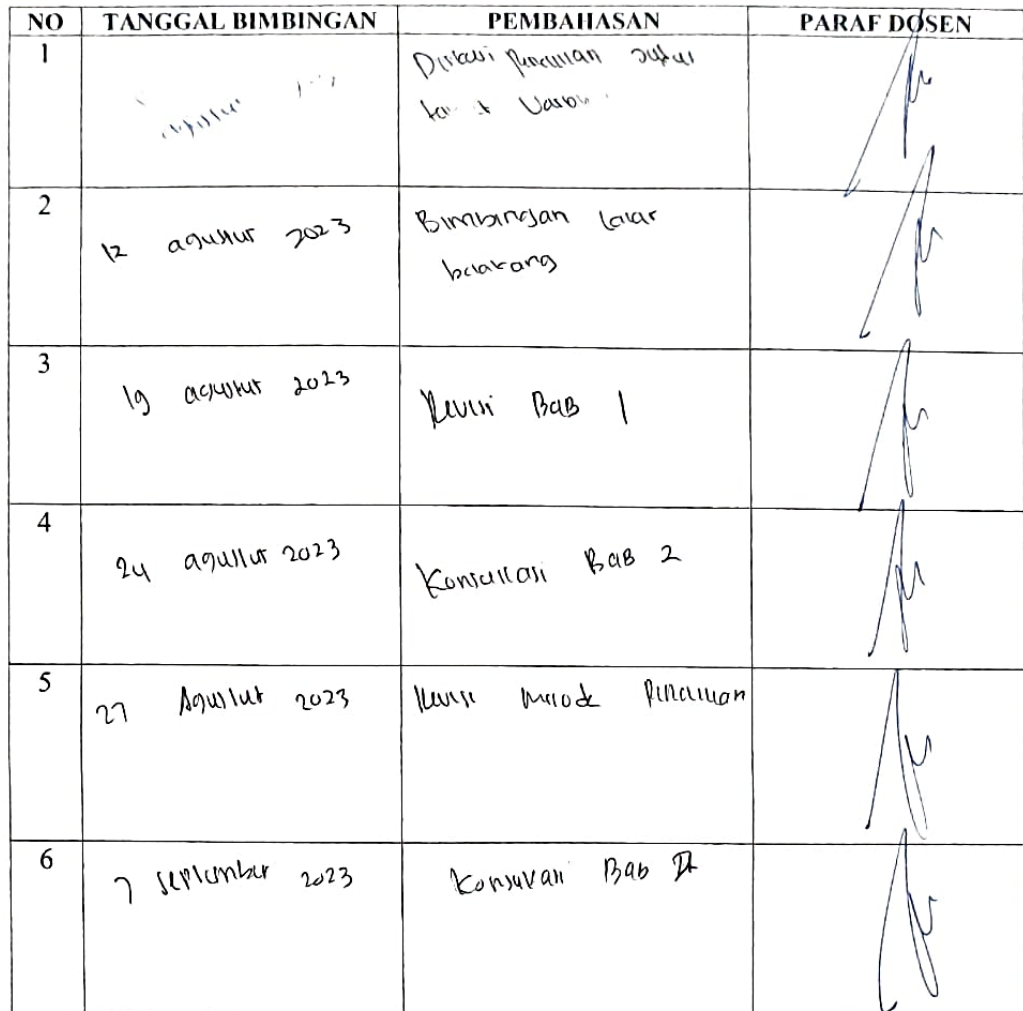 NO TANGGAL BIMBINGAN PEMBAHASAN PARAF DOSEN
1 Diskusi penelitian
2 12 agustus 2023 Bimbingan latar
belakang
3 19 agustus 2023 Revisi BAB 1
4 24 agustus 2023 Konsultasi BAB 2
5 27 Agustus 2023 Revisi Metode Penelitian
6 7 September 2023 Konsultasi Bab